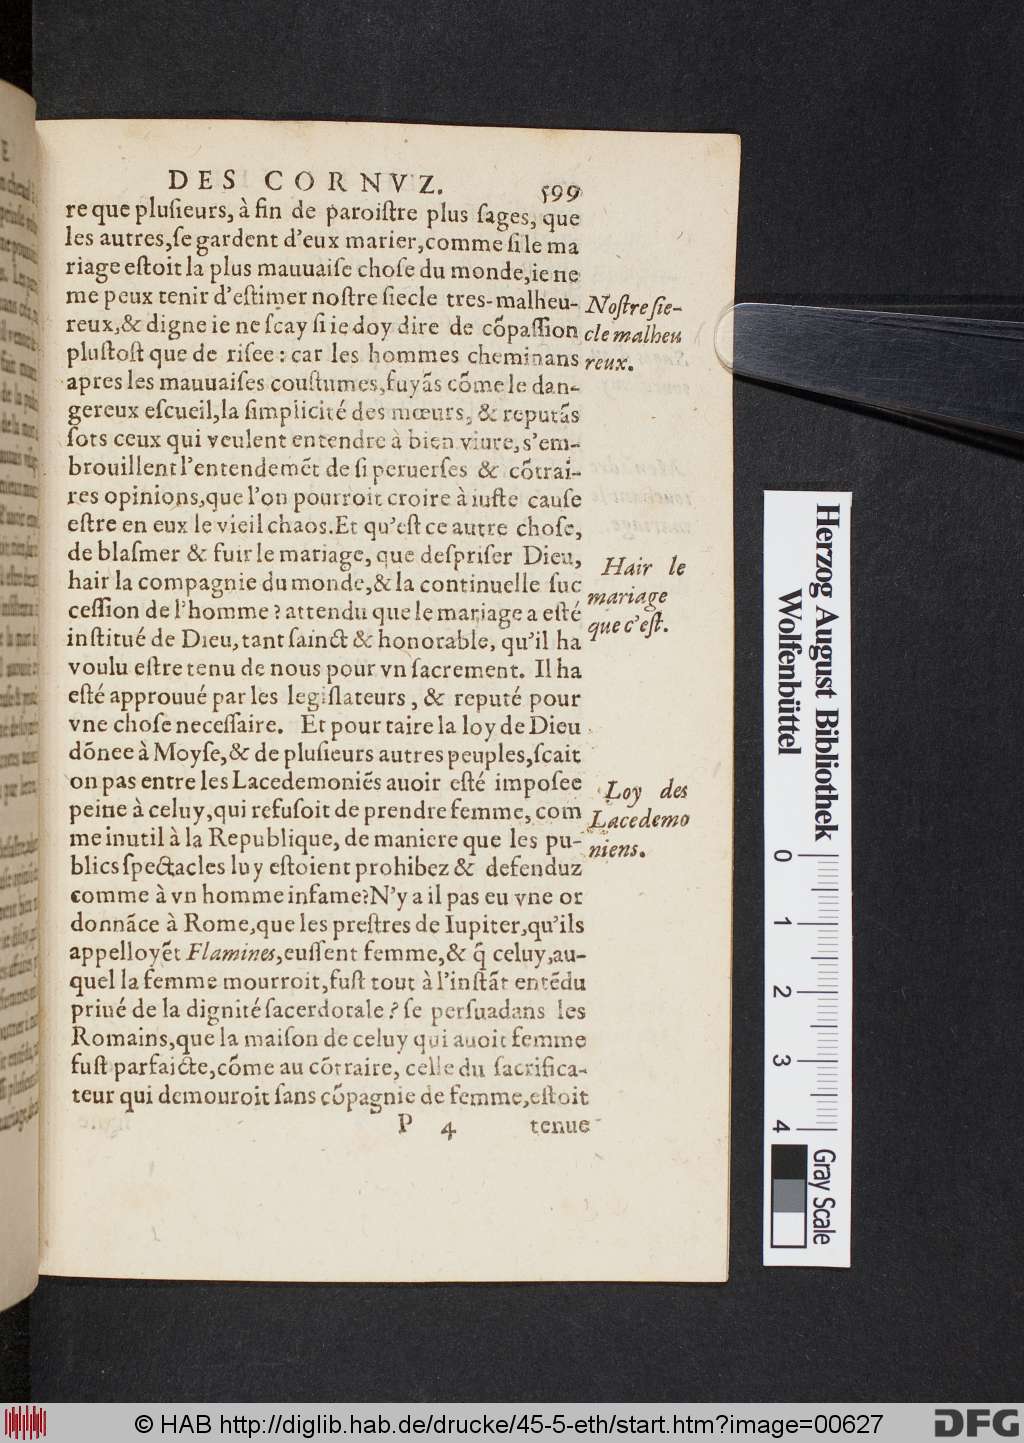 DES CORNVZ. 599
re que pluſieurs, à fin de paroiſtre plus ſages, que
les autres,ſe gardent d'eux marier,comme ſi le ma
riage eſtoit la plus mauuaiſe choſe du monde,ie ne
me peux tenir d'eſtimer noſtre ſiecle tres-malheu-
reux,& digne ie ne ſcay ſi ie doy dire de cõpaſſion
pluſtoſt que de riſee : car les hommes cheminans
apres les mauuaiſes couſtumes,fuyãs cõme le dan-
gereux eſcueil,la ſimplicité des mœurs, & reputãs
ſots ceux qui veulent entendre à bien viure,s'em-
brouillent l'entendemẽt de ſi peruerſes & cõtrai-
res opinions,que l'on pourroit croire à iuſte cauſe
eſtre en eux le vieil chaos.Et qu'eſt ce autre choſe,
de blaſmer & fuir le mariage, que deſpriſer Dieu,
hair la compagnie du monde,& la continuelle ſuc
ceſſion de l'homme ? attendu que le mariage a eſté
inſtitué de Dieu, tant ſainct & honorable, qu'il ha
voulu eſtre tenu de nous pour vn ſacrement. Il ha
eſté approuué par les legiſlateurs , & reputé pour
vne choſe neceſſaire. Et pour taire la loy de Dieu
dõnee à Moyſe,& de pluſieurs autres peuples,ſcait
on pas entre les Lacedemoniẽs auoir eſté impoſee
peine à celuy,qui refuſoit de prendre femme, com
me inutil à la Republique, de maniere que les pu-
blics ſpectacles luy eſtoient prohibez & defenduz
comme à vn homme infame?N'y a il pas eu vne or
donnãce à Rome,que les preſtres de Iupiter,qu'ils
appelloyẽt Flamines,euſſent femme,& q̃ celuy,au-
quel la femme mourroit,fuſt tout à l'inſtãt entẽdu
priué de la dignité ſacerdotale ? ſe perſuadans les
Romains,que la maiſon de celuy qui auoit femme
fuſt parfaicte,cõme au cõtraire, celle du ſacrifica-
teur qui demouroit ſans cõpagnie de femme,eſtoit
P 4 tenue
Noſtre ſie-
cle malheu
reux.
Hair le
mariage
que c'eſt.
Loy des
Lacedemo
niens.
Herzog August Bibliothek
Wolfenbüttel
0 1 2 3 4
Gray Scale
© HAB http://diglib.hab.de/drucke/45-5-eth/start.htm?image=00627
DFG